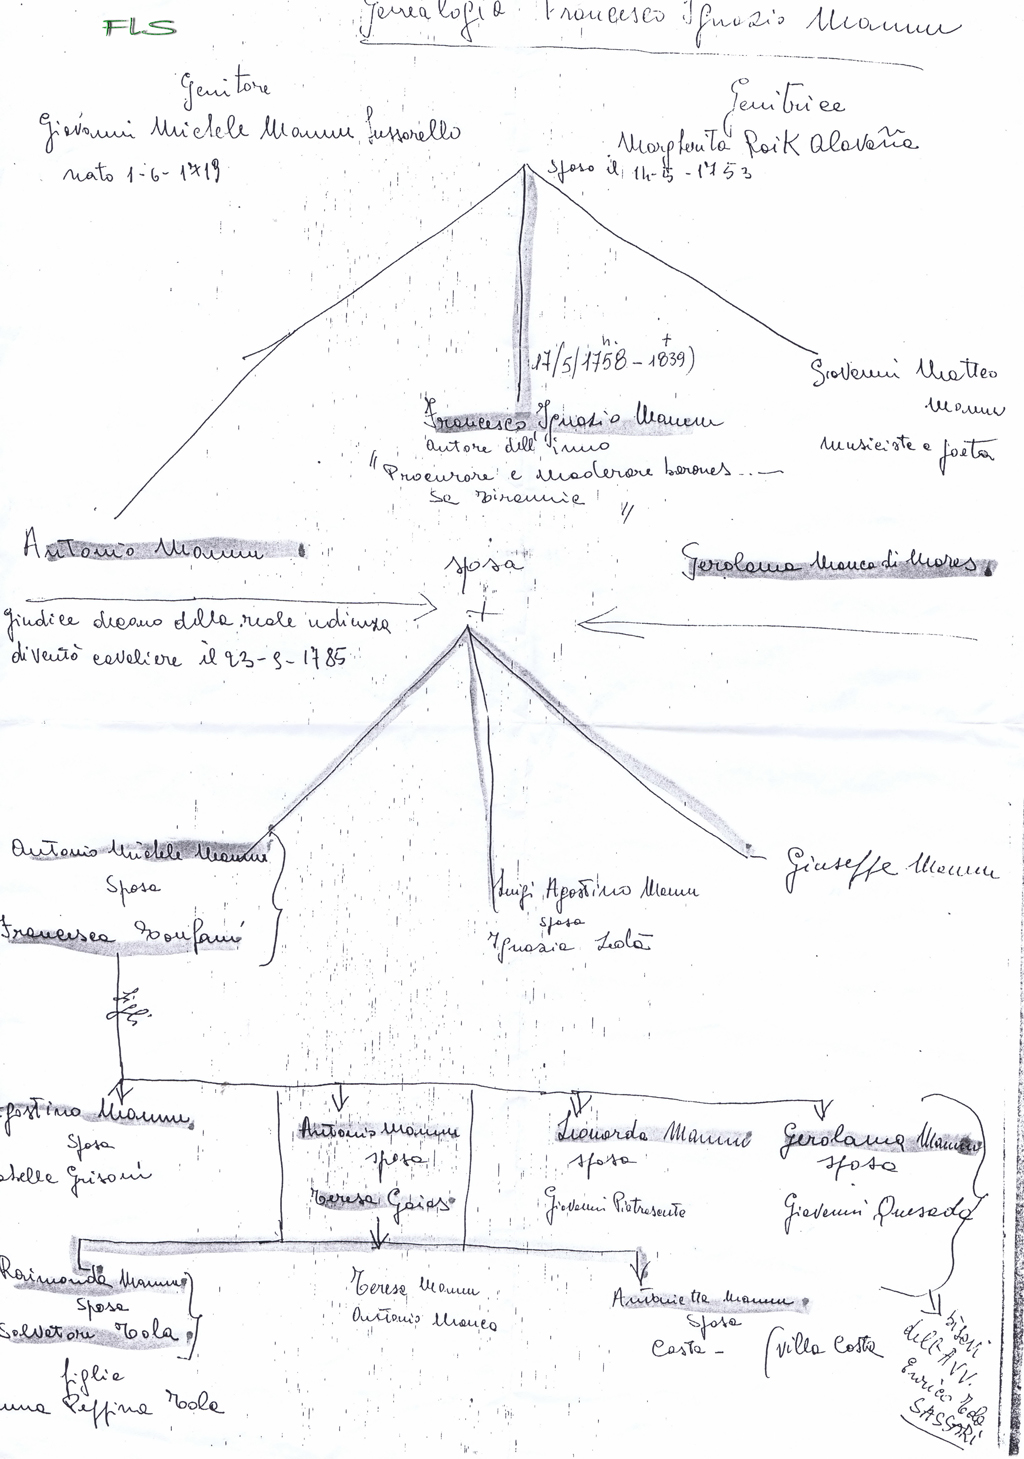 FLS
Genealogia Francesco Ignazio Mannu
Genitore
Genitrice
Giovanni Michele Mannu
Margherita Roik Alavaña
nato 1-6-1719
sposo il 14-5-1753
17/5/1758 - 1839)
n. +
Giovanni Matteo
Mannu
musicista e poeta
Francesco Ignazio Mannu
autore dell'inno
"Procurare e moderare barones...—
sa tirannia! "
Antonio Mannu
sposa
Gerolama Manca di Mores
+
Giudice decano della reale udienza
diventò cavaliere il 23-9-1785
Antonio Michele Mannu
Giuseppe Mannu
Sposa
Luigi Agostino Mannu
sposa
Francesca
Ignazia Ledà
figli
Agostino Mannu
Sposa
Grisoni
Antonio Mannu
sposa
Teresa Gaias
Leonarda Mannu
sposa
Giovanni Pietrasanta
Gerolama Mannu
sposa
Giovanni Quesada
Raimonda Mannu
Sposa
Salvatore Tola
figlia
Peppina Tola
Teresa Mannu
Antonio Manca
Antonietta Mannu
Sposa
Costa -
(Villa Costa
bisavi
dell'AVV.
Enrico Tola
SASSARI